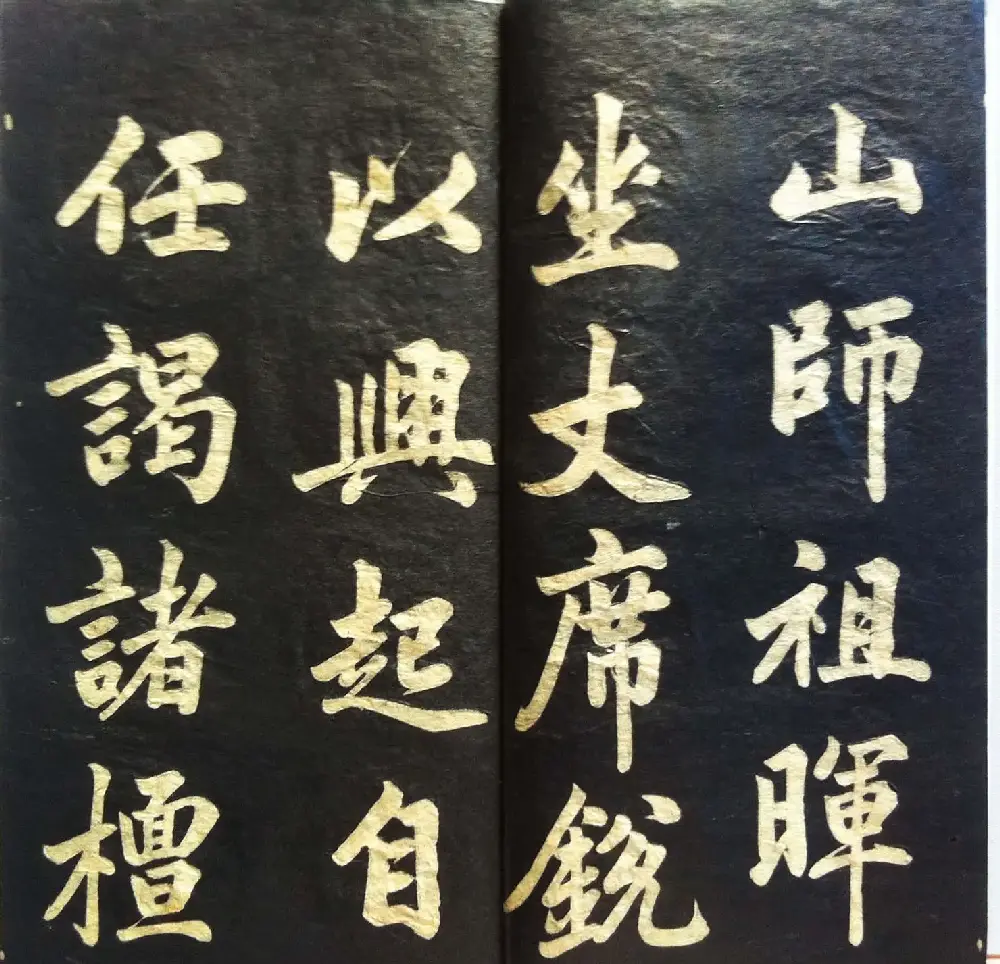 山師祖暉
坐丈席銳
以興起自
任謁諸檀